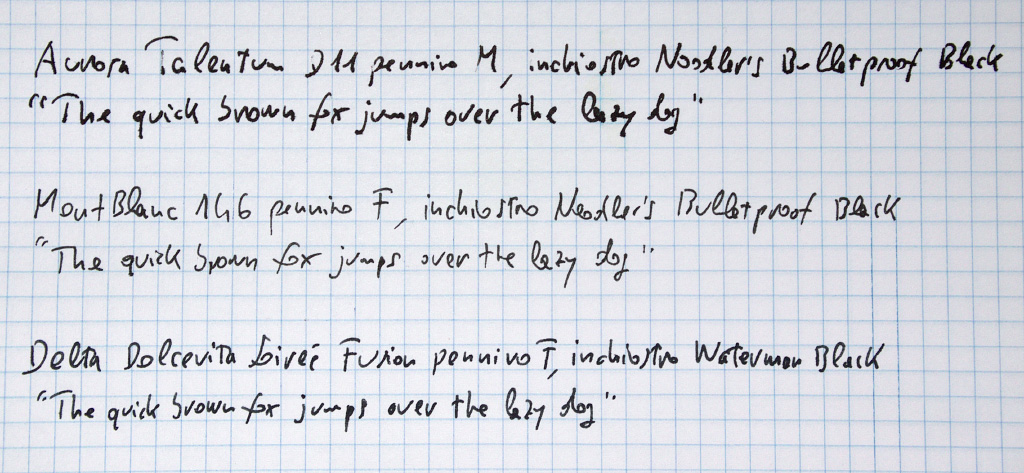 Aurora Talentum D11 pennino M, inchiostro Noodler's Bulletproof Black
"The quick brown fox jumps over the lazy dog"
MontBlanc 146 pennino F, inchiostro Noodler's Bulletproof Black
"The quick brown fox jumps over the lazy dog"
Delta Dolcevita Fusion pennino F, inchiostro Waterman Black
"The quick brown fox jumps over the lazy dog"